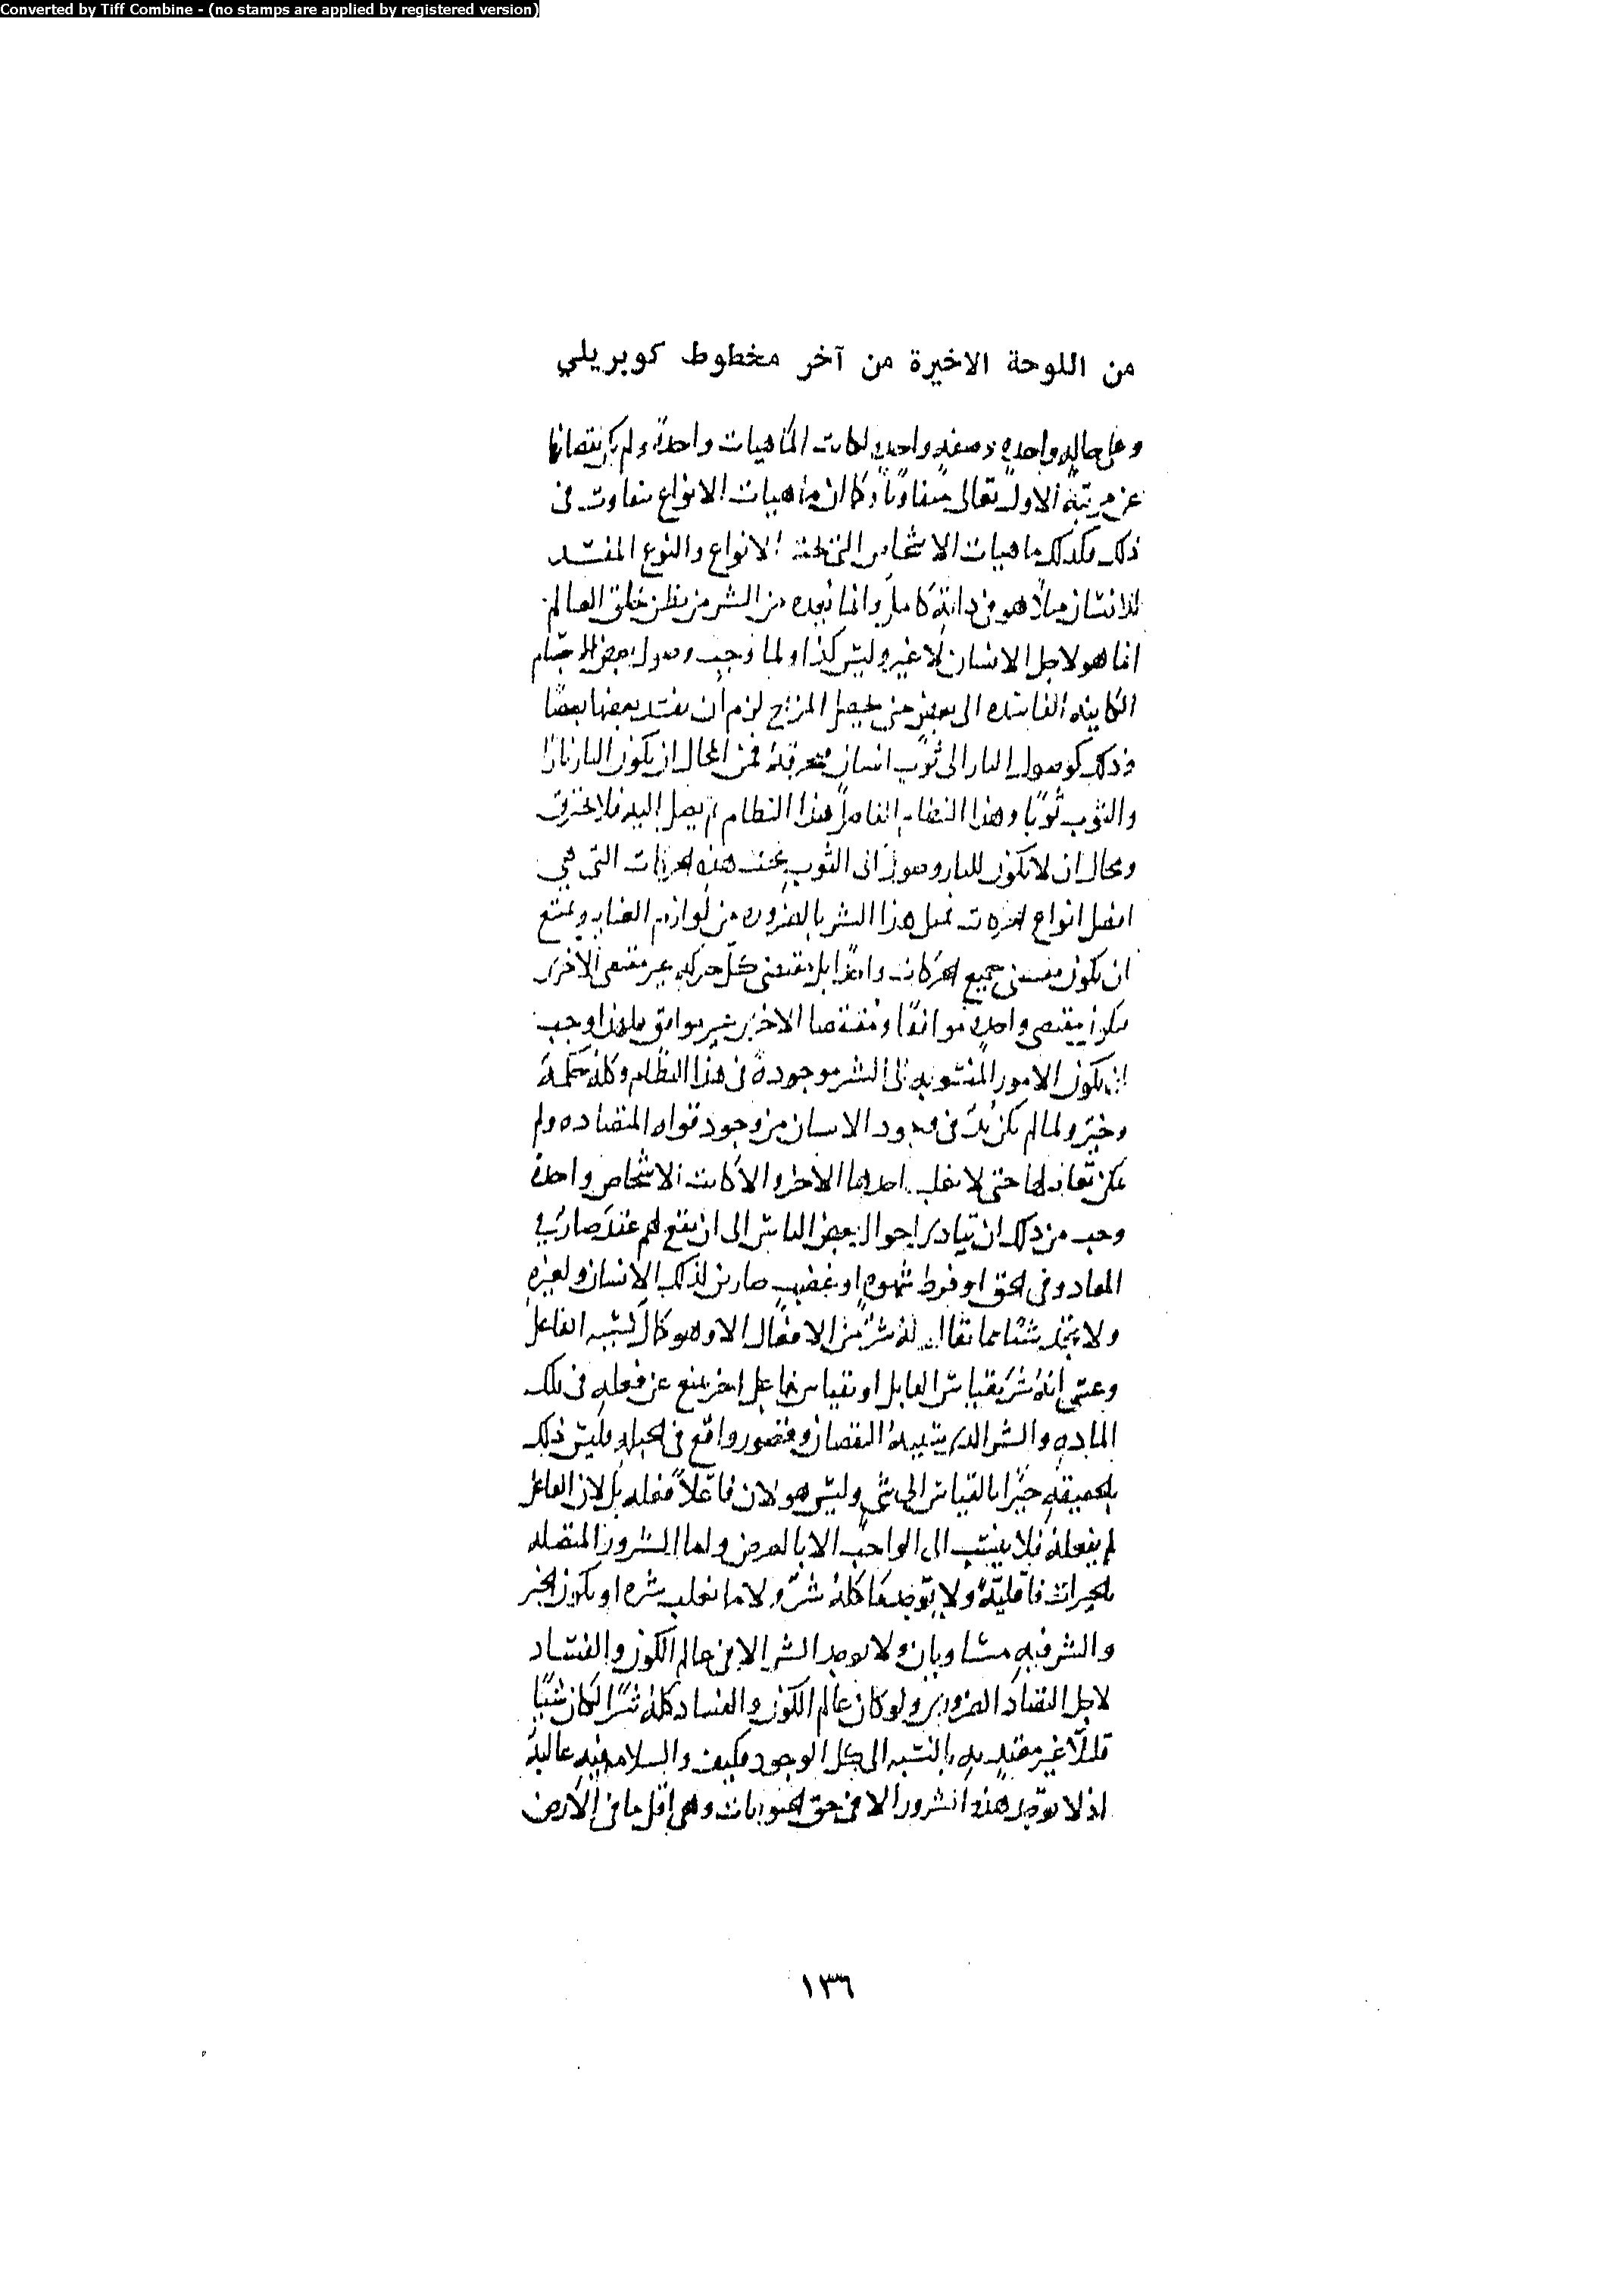 Converted by Tiff Combine - (no stamps are applied by registered version)
من اللوحة الاخيرة من آخر مخطوط كوبريلي
وعلى حاله واحده وصفه واحده لكانت الماهيات واحدة ولم يكن نقصانها
عن مرتبة الاول تعالى متفاوتا وكما ان ماهيات الانواع تتفاوت فى
ذلك فكذلك ماهيات الاشخاص التى تحت الانواع والنوع المفسد
للانسان مثلا هو فى ذاته كامل وانما يعده من الشر من يظن خلق العالم
انما هو لاجل الانسان لا غير وليس كذا ولما وجب وصول بعض الاجسام
الكاينه الفاسده الى بعض حتى يحصل المزاج لزم ان يفسد بعضها بعضا
وذلك كوصول النار الى ثوب انسان فتحرقه فمن المحال ان يكون النار نارا
والثوب ثوبا وهذا النظام الفاضل هذا النظام ثم يصل اليه فلا يحترق
ومحال ان لا يكون للنار وصول الى الثوب تحت هذه الحركات التى هى
افضل انواع الحركات فمثل هذا الشر بالضروره من لوازم العنايه ويمتنع
ان يكون مقتضى جميع الحركات واحدا بل مقتضى كل حركه غير مقتضى الاخرى
فيكون مقتضى واحده موافقا ومقتضا الاخرى غير موافق فلهذا وجب
ان يكون الامور المنسوبه الى الشر موجودة فى هذا النظام وكله حكمة
وخير ولما لم يكن بد فى وجود الانسان من وجود قواه المتضاده ولم
يمكن تعادلها حتى لا يغلب احدها الاخر والا كانت الاشخاص واحدة
وجب من ذلك ان تتادى احوال بعض الناس الى ان يقع لهم عقد ضار فى
المعاد وفى الحق او فرط شهوه او غضب ضارين لذلك الانسان ولغيره
ولا تجد شيئا مما يقال له شر من الافعال الا وهو كمال لسببه الفاعل
وعسى انه شر بقياس القابل او بقياس فاعل اخر يمنع عن فعله فى تلك
الماده والشر الذى سببه النقصان وقصور واقع فى الجبله فليس ذلك
بالحقيقه خيرا بالقياس الى شى وليس هو لان فاعلا فعله بل لان الفاعل
لم يفعله فلا ينسب الى الواجب الا بالعرض واما الشرور المتصله
بالخيرات فاقليه ولا يوجد ما كله شر ولا ما يغلب شره او يكون الخير
والشر فيه متساويان ولا يوجد الشر الا فى عالم الكون والفساد
لاجل التضاد الضرورى ولو كان عالم الكون والفساد كله شرا لكان شيا
قليلا غير معتد به بالنسبه الى كل الوجود فكيف والسلامه فيه غالبة
اذ لا يوجد هذه الشرور الا فى حق الحيوانات وهى اقل ما فى الارض
١٣٦